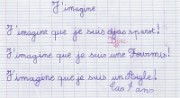 J'imagine
J'imagine que je suis
J'imagine que je suis une Fourmi!
J'imagine que je suis un Aigle!
ans